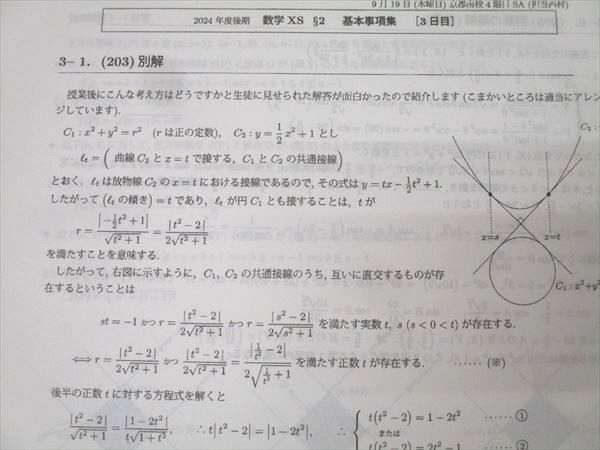 9月19日 (木曜日) 京都南校 4 限 SA (担当西村)
2024 年度後期 数学 XS §2 基本事項集 [3 日目]
3– 1. (203) 別解
授業後にこんな考え方はどうですかと生徒に見せられた解答が面白かったので紹介します (こまかいところは適当にアレン
ジしています).
C₁ : x² + y² = r² (r は正の定数), C₂ : y = 1/2 x² + 1 とし
ℓₜ = ( 曲線 C₂ と x = t で接する, C₁ と C₂ の共通接線 )
とおく. ℓₜ は放物線 C₂ の x = t における接線であるので, その式は y = tx − 1/2 t² + 1.
したがって (ℓₜ の傾き) = t であり, ℓₜ が円 C₁ とも接することは, t が
r = |−1/2 t² + 1| / √(t² + 1) = |t² − 2| / 2√(t² + 1)
を満たすことを意味する.
したがって, 右図に示すように, C₁, C₂ の共通接線のうち, 互いに直交するものが存
在するということは
st = −1 かつ r = |t² − 2| / 2√(t² + 1) かつ r = |s² − 2| / 2√(s² + 1) を満たす実数 t, s (s < 0 < t) が存在する.
⟺ r = |t² − 2| / 2√(t² + 1) かつ |t² − 2| / 2√(t² + 1) = |1/t² − 2| / 2√(1/t² + 1) を満たす正数 t が存在する. …… (※)
後半の正数 t に対する方程式を解くと
|t² − 2| / √(t² + 1) = |1 − 2t²| / t√(1 + t²), ∴ t|t² − 2| = |1 − 2t²|, ∴ { t(t² − 2) = 1 − 2t² …… ①
または
t(t² − 2) = 2t² − 1 …… ②
C₂ :
x=s
x=t
C₁ : x²+y²